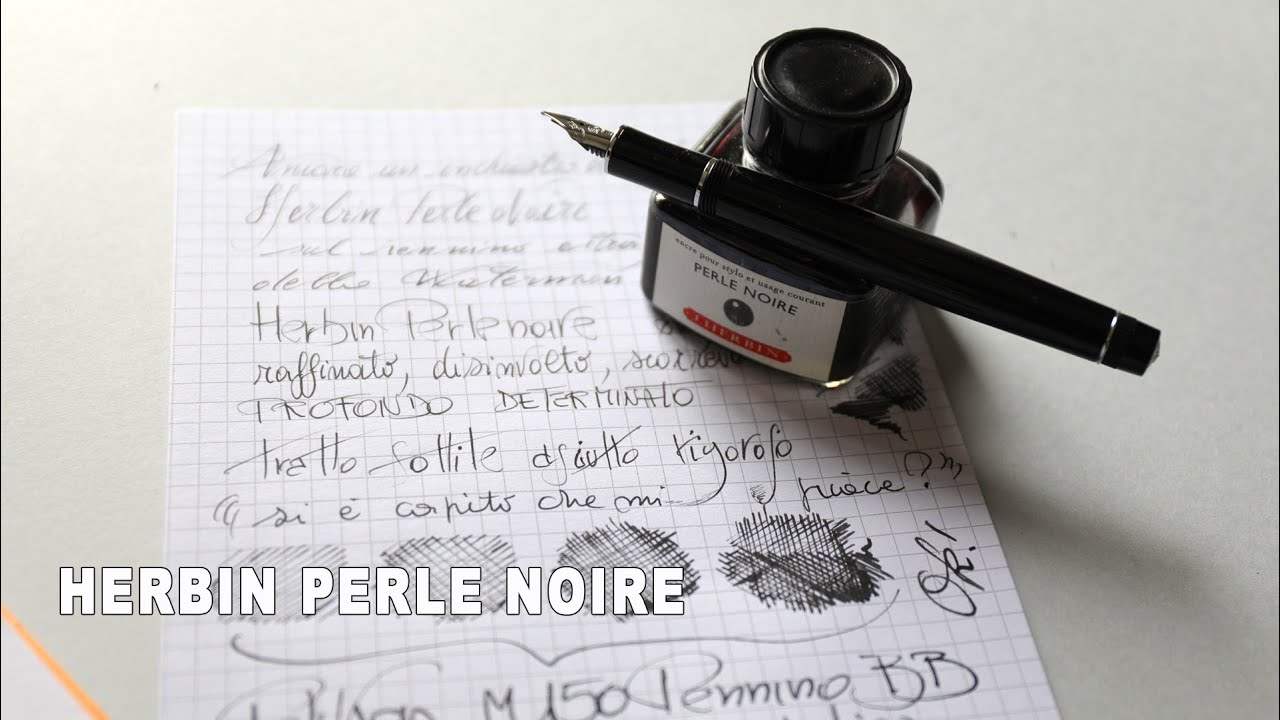 Ancora un inchiostro
Herbin Perle Noire
sul pennino extra
della Waterman
Herbin Perle noire
raffinato, disinvolto, scorrevo
PROFONDO DETERMINATO
tratto sottile asciutto rigoroso
"si è capito che mi piace?"
Ok!
M150 Pennino BB
encre pour stylo et usage courant
PERLE NOIRE
J.HERBIN
HERBIN PERLE NOIRE